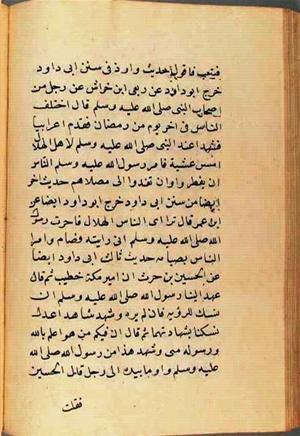 فيتعب فاقول حديث وارد في سنن ابى داود
خرج ابوداود عن ربعى ابن خراش عن رجل من
اصحاب النبى صلى الله عليه وسلم قال اختلف
الناس فى اخر يوم من رمضان فقدم اعرابيا
فشهدا عند النبى صلى الله عليه وسلم لاهل الهلال
امس عشية فامر رسول الله صلى الله عليه وسلم الناس
ان يفطروا وان تغدوا الى مصلاهم حديث اخر
ايضا من سنن ابى داود خرج ابوداود ايضا عن
ابن عمر قال تراى الناس الهلال فاخبرت رسول
الله صلى الله عليه وسلم انى رايته وصام وامر
الناس بصيامه حديث ثالث ابى داود ايضا
عن الحسين بن حرث ان امير مكة خطيب ثم قال
عهد الينا رسول الله صلى الله عليه وسلم ان
ننسك للرؤية فان لم يره وشهد شاهدا عدل
نسكنا بشهادتهما ثم قال ان فيكم من هو اعلم بالله
ورسوله منى وشهد هذا من رسول الله صلى الله
عليه وسلم واومأ بيده الى رجل قال الحسين
فقلت